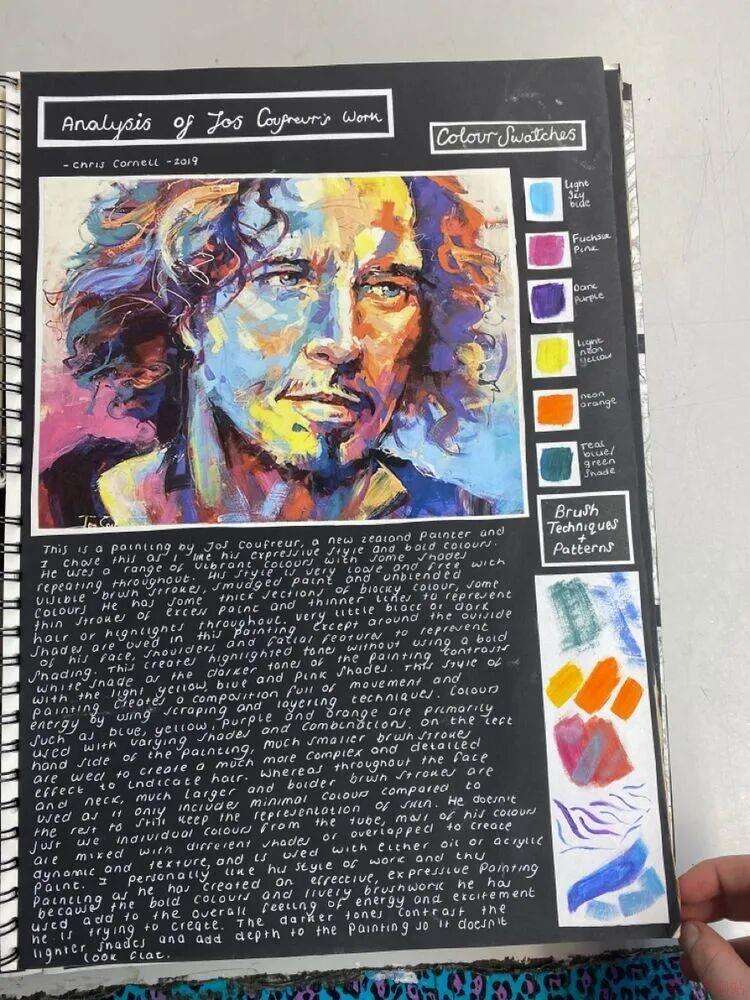 Analysis of Jos Coufreur's Work
Colour Swatches
- Chris Cornell - 2019
Light
Sky
blue
Fuchsia
Pink
Dark
Purple
Light
neon
yellow
neon
orange
Teal
blue/
green
shade
Brush
Techniques
+
Patterns
This is a painting by Jos Coufreur, a new zealand painter and
I chose this as I like his expressive style and bold colours.
He uses a range of vibrant colours with some shades
repeating throughout. His style is very loose and free with
visible brush strokes, smudged paint and unblended
colours. He has some thick sections of blocky colour, some
thin strokes of excess paint and thinner lines to represent
hair or highlights throughout. Very little black or dark
shades are used in this painting except around the outside
of his face, shoulders and facial features to represent
shading. This creates highlighted tones without using a bold
white shade as the darker tones of the painting contrasts
with the light yellow, blue and pink shades. This style of
painting creates a composition full of movement and
energy by using scraping and layering techniques. Colours
such as blue, yellow, purple and orange are primarily
used with varying shades and combinations. On the left
hand side of the painting, much smaller brushstrokes
are used to create a much more complex and detailed
effect to indicate hair. Whereas throughout the face
and neck, much larger and bolder brush strokes are
used as it only includes minimal colours compared to
the rest to still keep the representation of skin. He doesn't
just use individual colours from the tube, most of his colours
are mixed with different shades or overlapped to create
dynamic and texture, and is used with either oil or acrylic
paint. I personally like his style of work and this
painting as he has created an effective, expressive painting
because the bold colours and lively brushwork he has
used add to the overall feeling of energy and excitement
he is trying to create. The darker tones contrast the
lighter shades and add depth to the painting so it doesn't
look flat.